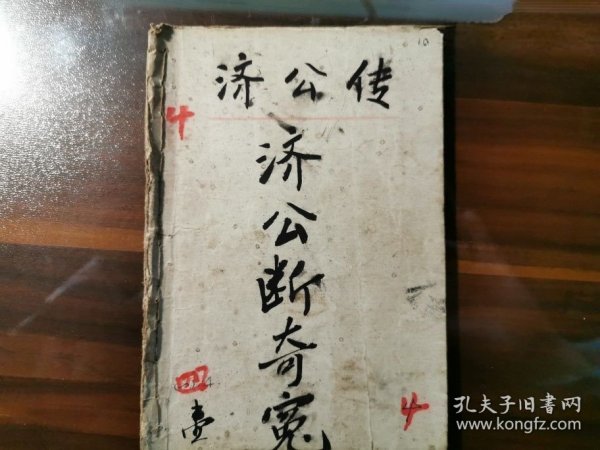 10
济公传
4
济公断奇冤
四
壹
4
孔夫子旧书网
www.kongfz.com